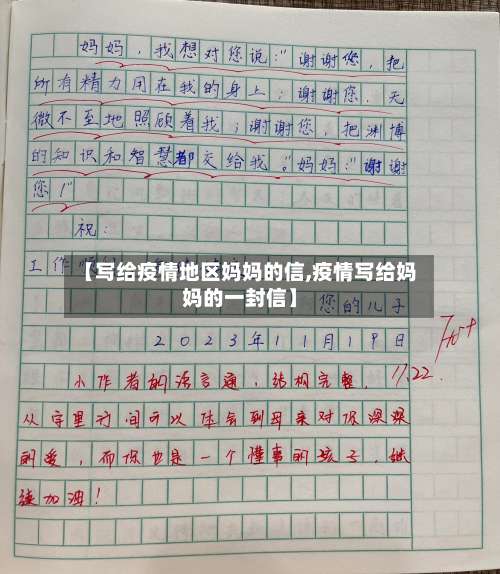 妈妈，我想对您说：“谢谢您，把
所有精力用在我的身上；谢谢您，无
微不至地照顾着我；谢谢您，把渊博
的知识和智慧都交给我。”妈妈：“谢谢
您！”
祝：
工作顺
【写给疫情地区妈妈的信,疫情写给妈
妈的一封信】
您的儿子
2023年11月19日
11.22.
小作者的语言通，结构完整，
从字里行间可以体会到母亲对你深深
的爱，而你也是一个懂事的孩子，继
续加油！